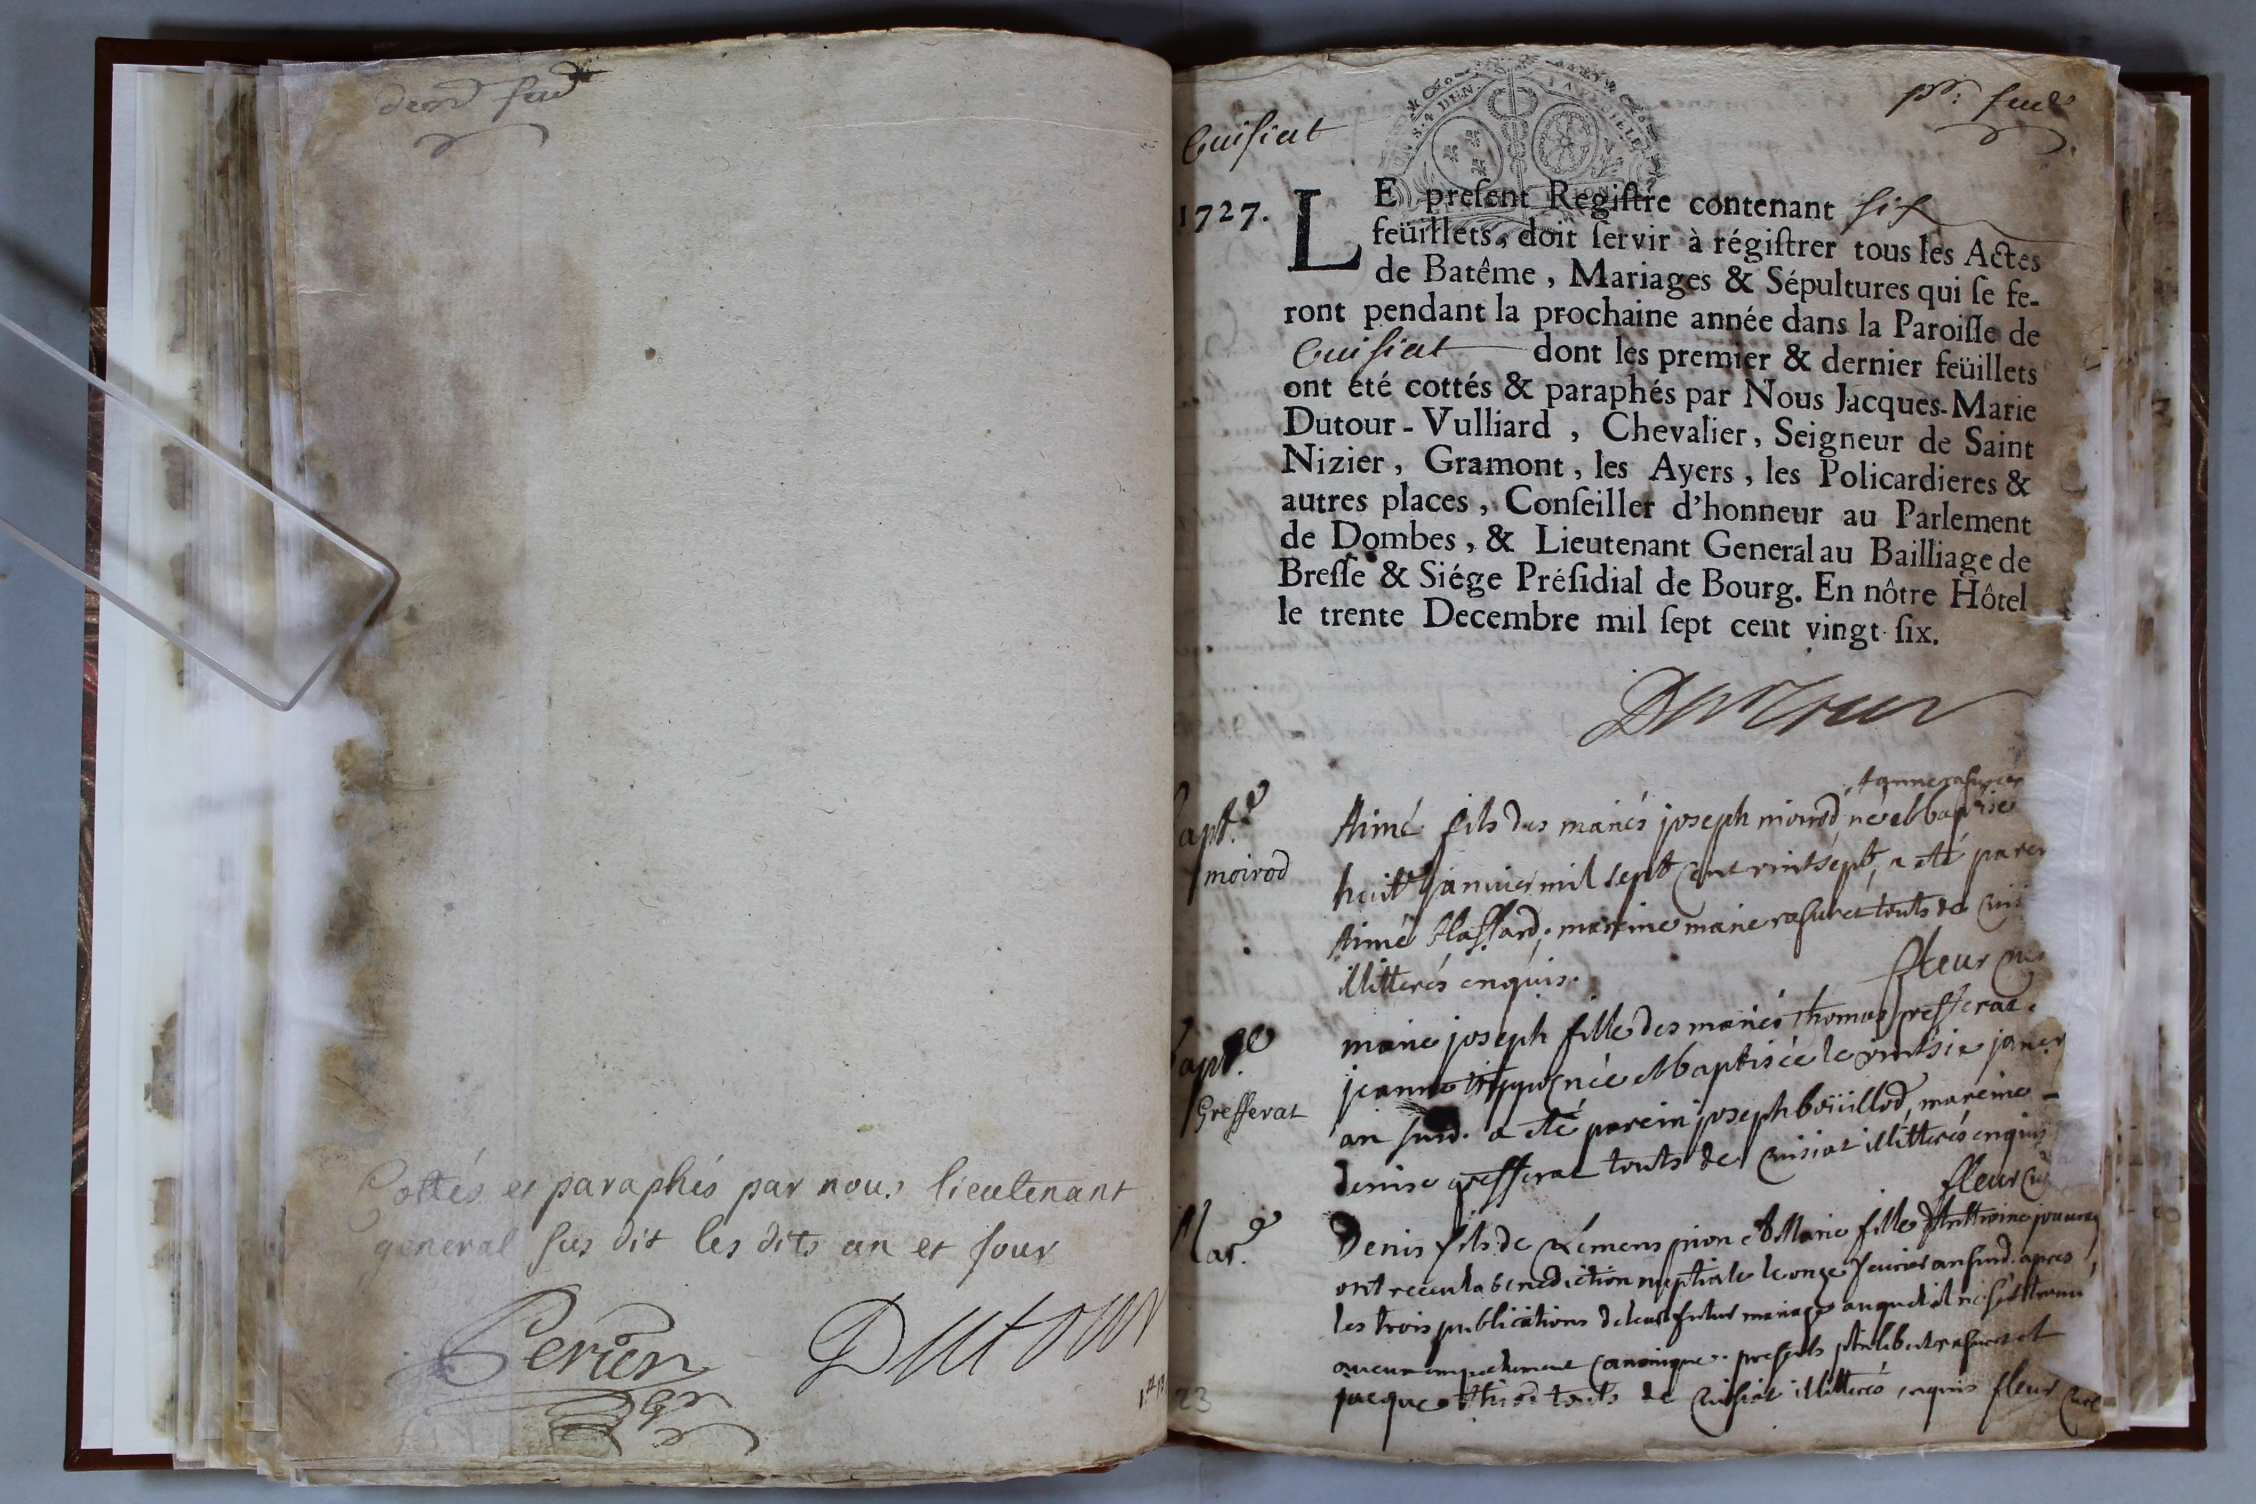 Cottés et paraphés par nous lieutenant
general sus dit les dits an et jour
Perier
Dutour
Cuisiat
1727.
LE present Regiſtre contenant six
feüillets, doit ſervir à régiſtrer tous les Actes
de Batême, Mariages & Sépultures qui ſe fe-
ront pendant la prochaine année dans la Paroiſſe de
Cuisiat dont les premier & dernier feüillets
ont été cottés & paraphés par Nous Jacques-Marie
Dutour-Vulliard, Chevalier, Seigneur de Saint
Nizier, Gramont, les Ayers, les Policardieres &
autres places, Conſeiller d'honneur au Parlement
de Dombes, & Lieutenant General au Bailliage de
Breſſe & Siége Préſidial de Bourg. En nôtre Hôtel
le trente Decembre mil ſept cent vingt ſix.
Dutour
moirod
Aimé fils des mariés joseph moirod né et baptisé
huit janvier mil sept cent vintsept, a été parein
Aimé mareine marie rasuret touts de
illitterés enquis.
fleur
Grefferat
marie joseph fille des mariés thomas grefferat
jeanne née et baptisée le vintsix
an susd. a été parein joseph boüillod, mareine
denise grefferat touts de cuisiat illitterés enquis
fleur
Mar.
Denis fils de clemens pion et Marie fille d'Anttoine
ont receu la benediction nuptiale le onze fevrier an susd. apres
les trois publications de leur futur mariage auquel il ne s'est trouvé
aucun empechement canonique. presents
jacque touts de cuisiat illitterés enquis fleur curé
23